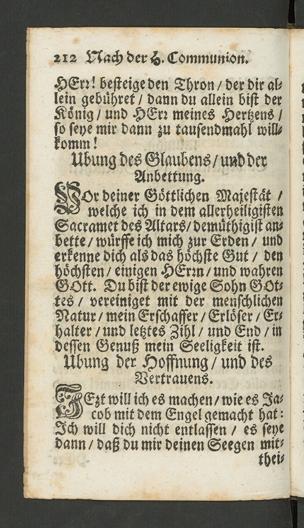 212 Nach der H. Communion.
HErr! besteige den Thron / der dir al-
lein gebühret / dann du allein bist der
König / und HErr meines Hertzens /
so seye mir dann zu tausendmahl will-
komm!
Ubung des Glaubens / und der
Anbettung.
VOr deiner Göttlichen Majestät /
welche ich in dem allerheiligisten
Sacramet des Altars / demüthigist an-
bette / würffe ich mich zur Erden / und
erkenne dich als das höchste Gut / den
höchsten / einigen HErrn / und wahren
GOtt. Du bist der ewige Sohn GOt-
tes / vereiniget mit der menschlichen
Natur / mein Erschaffer / Erlöser / Er-
halter / und letztes Zihl / und End / in
dessen Genuß mein Seeligkeit ist.
Ubung der Hoffnung / und des
Vertrauens.
JEzt will ich es machen / wie es Ja-
cob mit dem Engel gemacht hat:
Ich will dich nicht entlassen / es seye
dann / daß du mir deinen Seegen mit-
thei-